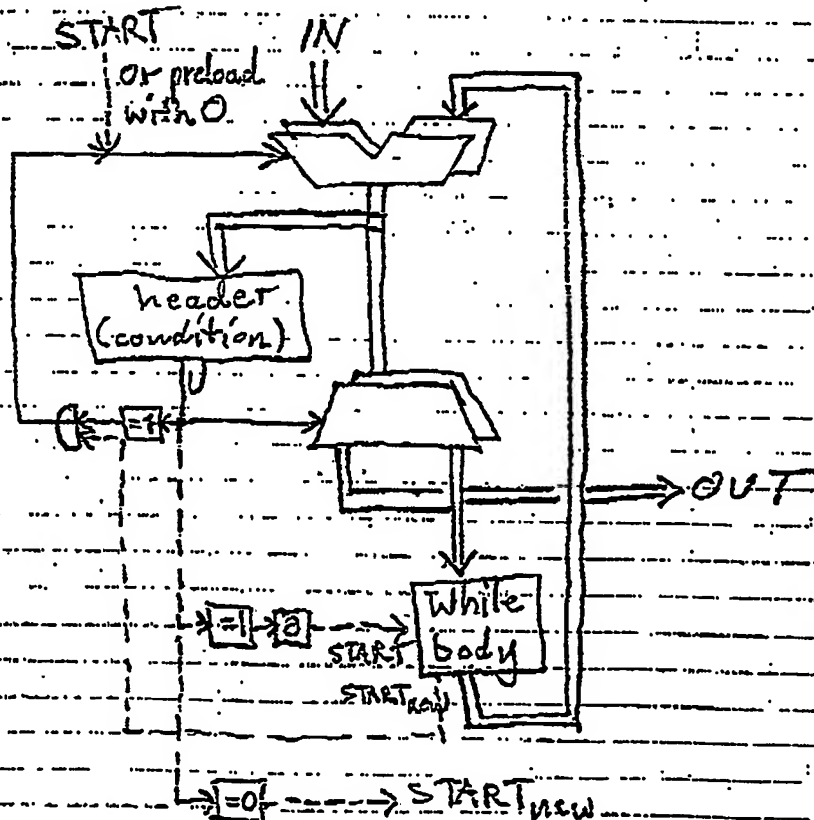 START
or preload
with 0
IN
header
(condition)
OUT
=1
While
body
START
START new
=0
START new